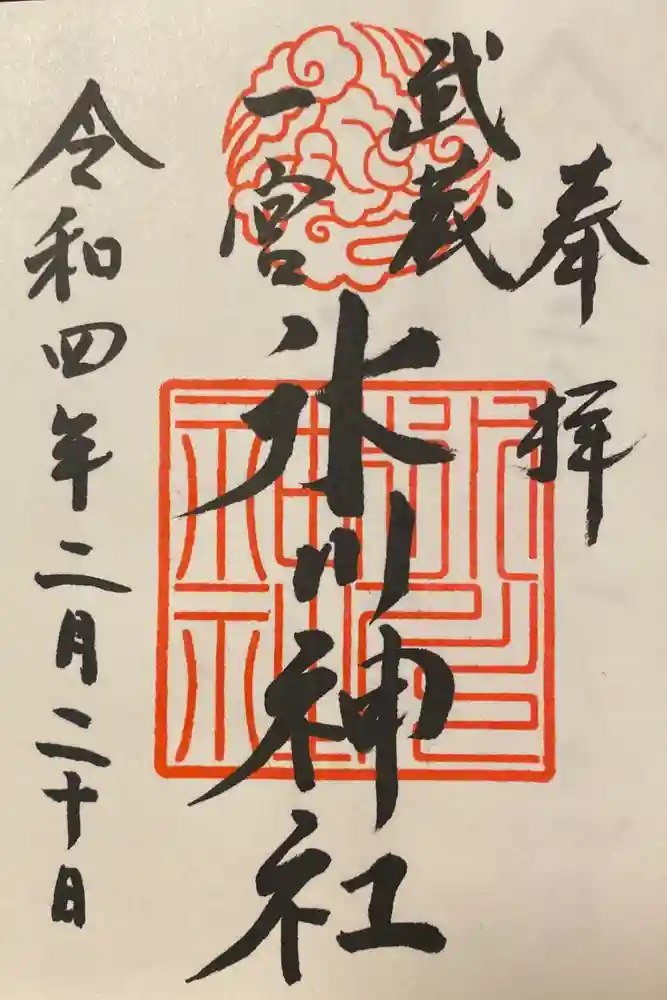 奉拝
武蔵
一宮
氷川神社
令和四年二月二十日